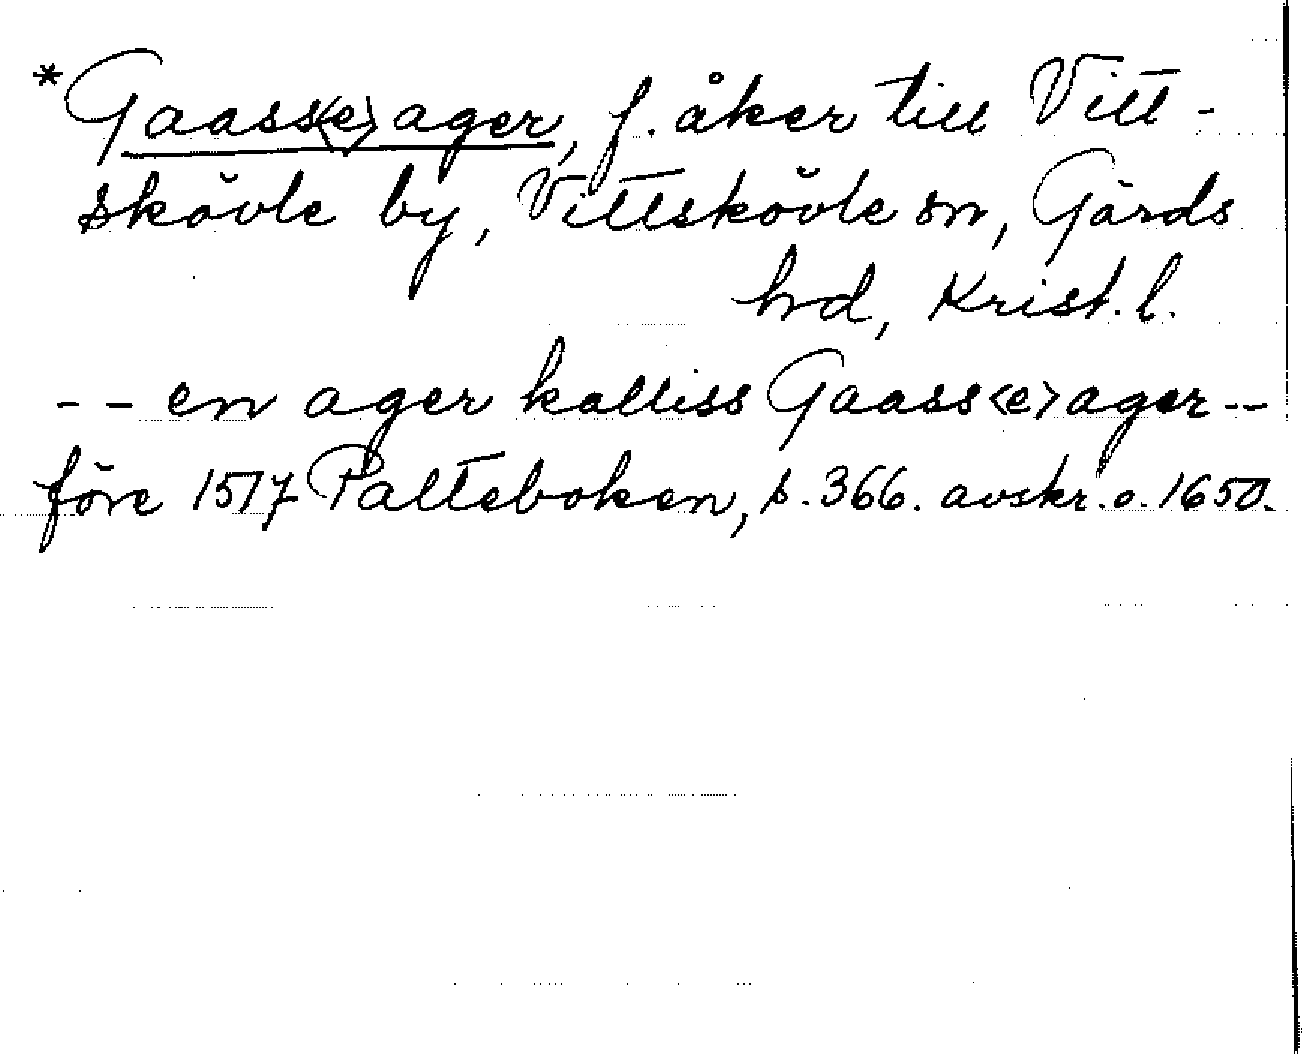 *Gaass<e>ager, f. åker till Vitt-
skövle by, Vittskövle sn, Gärds
hrd, Krist. l.
-- en ager kalliss Gaass<e>ager --
före 1517 Palteboken, s. 366. avskr. o. 1650.